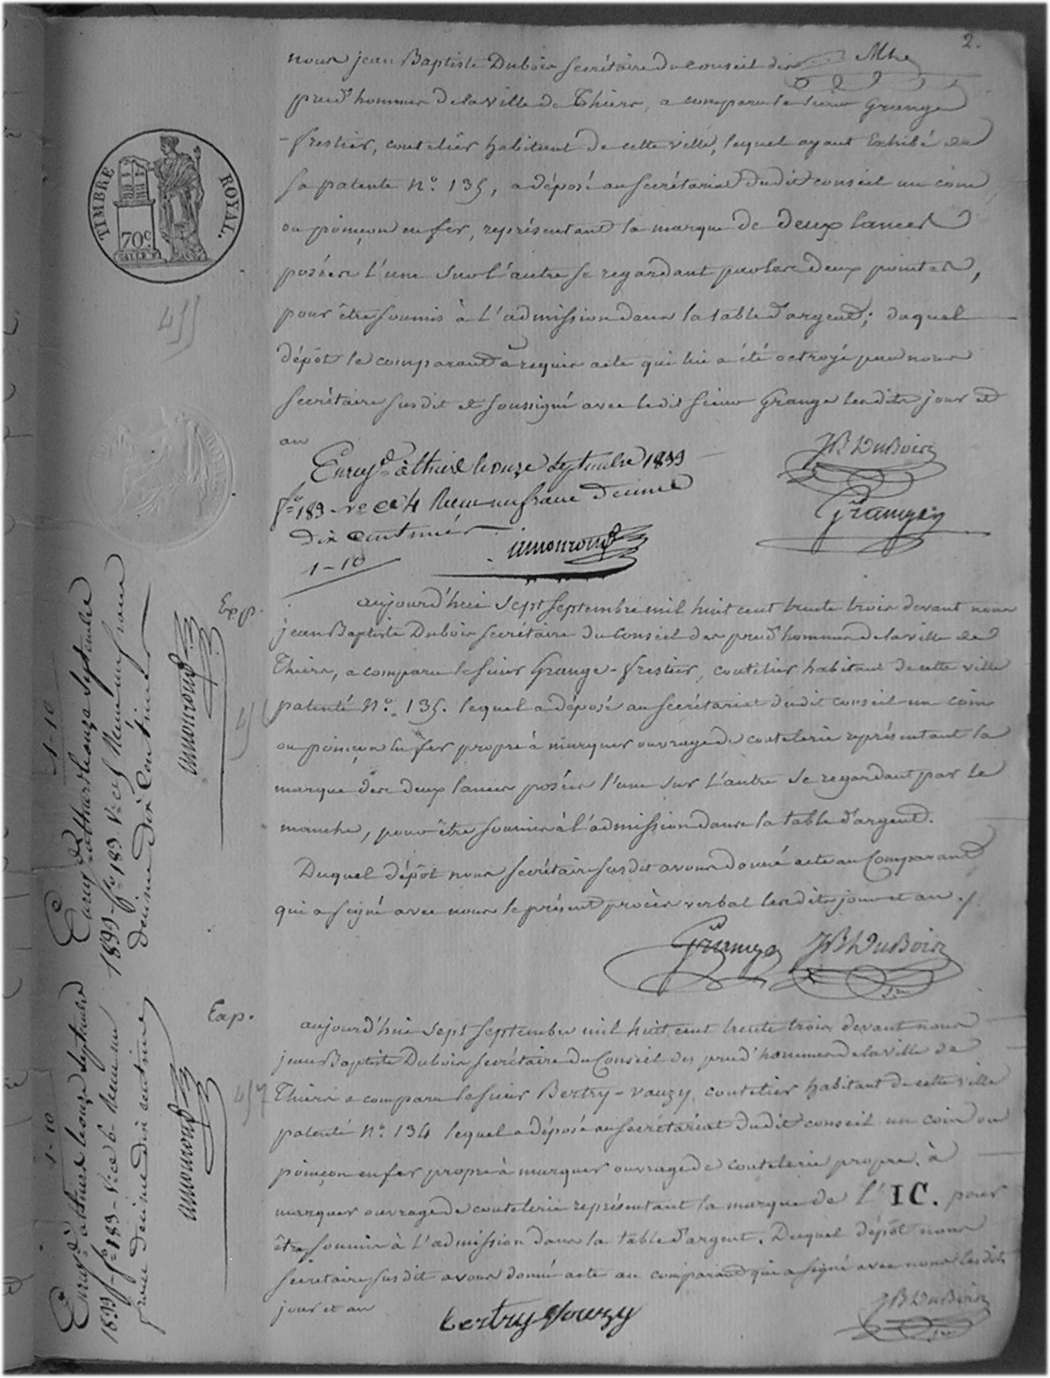 2.
nous jean Baptiste Dubois secrétaire du Conseil des
prud'hommes de la ville de Thiers, a comparu le sieur Grange
-frestier, coutelier habitant de cette ville, lequel ayant Exhibé de
sa patente N.º 135, a déposé au secrétariat dudit conseil un coin
ou poinçon en fer, représentant la marque de deux lances
posées l'une sur l'autre se regardant par les deux pointes,
pour être soumis à l'admission dans la table d'argent; duquel
dépôt le comparant a requis acte qui lui a été octroyé par nous
secrétaire susdit et soussigné avec ledit sieur Grange lesdits jour et
an
TIMBRE ROYAL.
70c
455
JB Dubois
Grange
Enregé à thiers le onze septembre 1833
fo 189 Vo Ce 4 Reçu un franc décime
dix centimes
1-10
aujourd'hui sept septembre mil huit cent trente trois devant nous
jean Baptiste Dubois secrétaire du Conseil des prud'hommes de la ville de
Thiers, a comparu le sieur Grange-frestier, coutelier habitant de cette ville
patenté N.º 135. lequel a déposé au secrétariat dudit conseil un coin
ou poinçon en fer propre à marquer ouvrage de coutellerie représentant la
marque des deux lances posées l'une sur l'autre se regardant par le
manche, pour être soumis à l'admission dans la table d'argent.
Duquel dépôt nous secrétaire susdit avons donné acte au Comparant
qui a signé avec nous le présent procès verbal lesdits jour et an ./.
Exp.
456
Grange JB Dubois
1-10
Enregé à thiers le onze septembre
1833 fo 189 Vo Ce 5 Reçu un franc
décime dix centimes
Exp.
457
aujourd'hui sept septembre mil huit cent trente trois devant nous
jean Baptiste Dubois secrétaire du Conseil des prud'hommes de la ville de
Thiers a comparu le sieur Bertry-vauzy, coutelier habitant de cette ville
patenté N.º 134 lequel a déposé au secrétariat dudit conseil un coin ou
poinçon en fer propre à marquer ouvrage de coutelerie propre. à
marquer ouvrage de coutelerie représentant la marque de l'IC. pour
être soumis à l'admission dans la table d'argent. Duquel dépôt nous
secrétaire susdit avons donné acte au comparant qui a signé avec nous lesdits
jour et an
bertry vouzy
JB Dubois
1-10
Enregé à thiers le onze septembre
1833 fo 189 Vo Ce 6 Reçu un
franc décime dix centimes